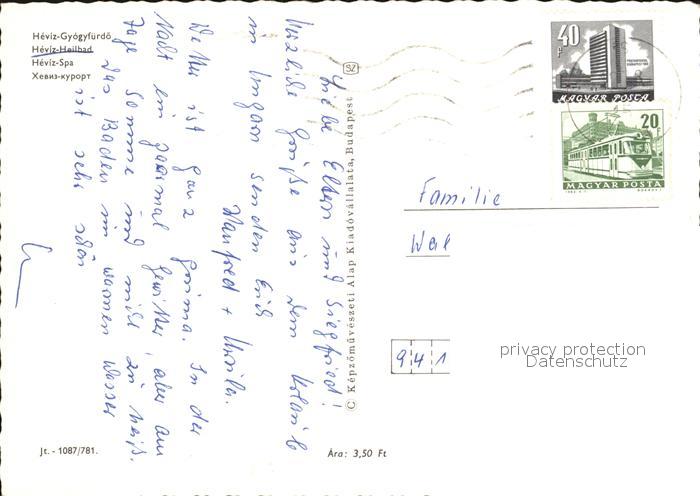 Hévíz-Gyógyfürdő
Hévíz-Heilbad
Hévíz-Spa
Хевиз-курорт
Liebe Eltern und Siegfried!
Herzliche Grüße aus dem Urlaub
in Ungarn senden Euch
Manfred + Ursula.
Wetter ist ganz prima. In der
Nacht ein paarmal Gewitter, aber am
Tage Sonne und nicht zu heiß.
Das Baden im warmen Wasser
ist sehr schön
SZ
© Képzőművészeti Alap Kiadóvállalata, Budapest
40
f
MAGYAR POSTA
20
MAGYAR POSTA
Familie
941
privacy protection
Datenschutz
Jt. - 1087/781.
Ára: 3,50 Ft